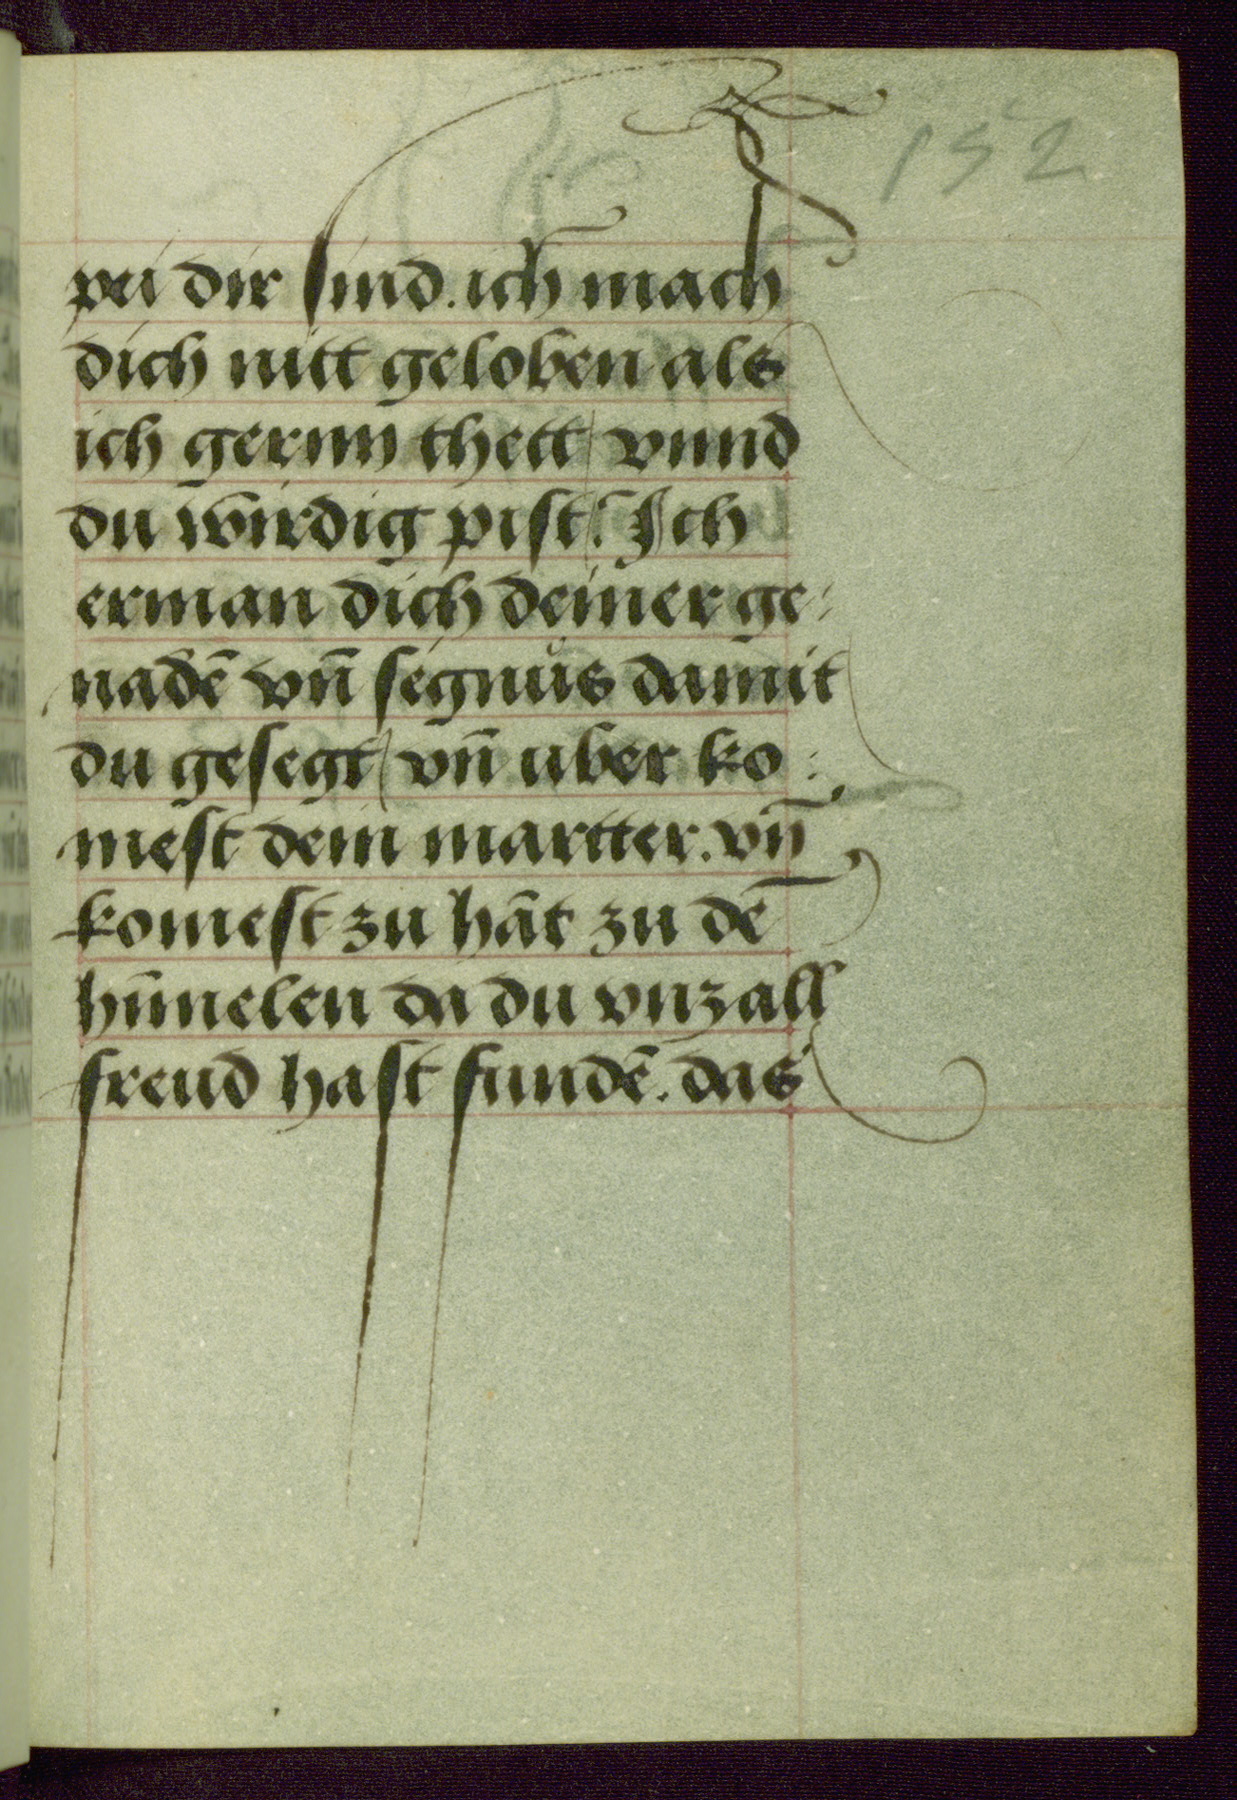 152
pei dir sind. ich mach
dich nitt geloben als
ich gernn thett / vnnd
du wirdig pist. Ich
erman dich deiner ge:
nadē vn̄ segnůs damit
du gesegt / vn̄ uber ko:
mest dein martter. vn̄
komest zu hāt zu dē
hīmelen da du vnzall
freud hast fundē. das